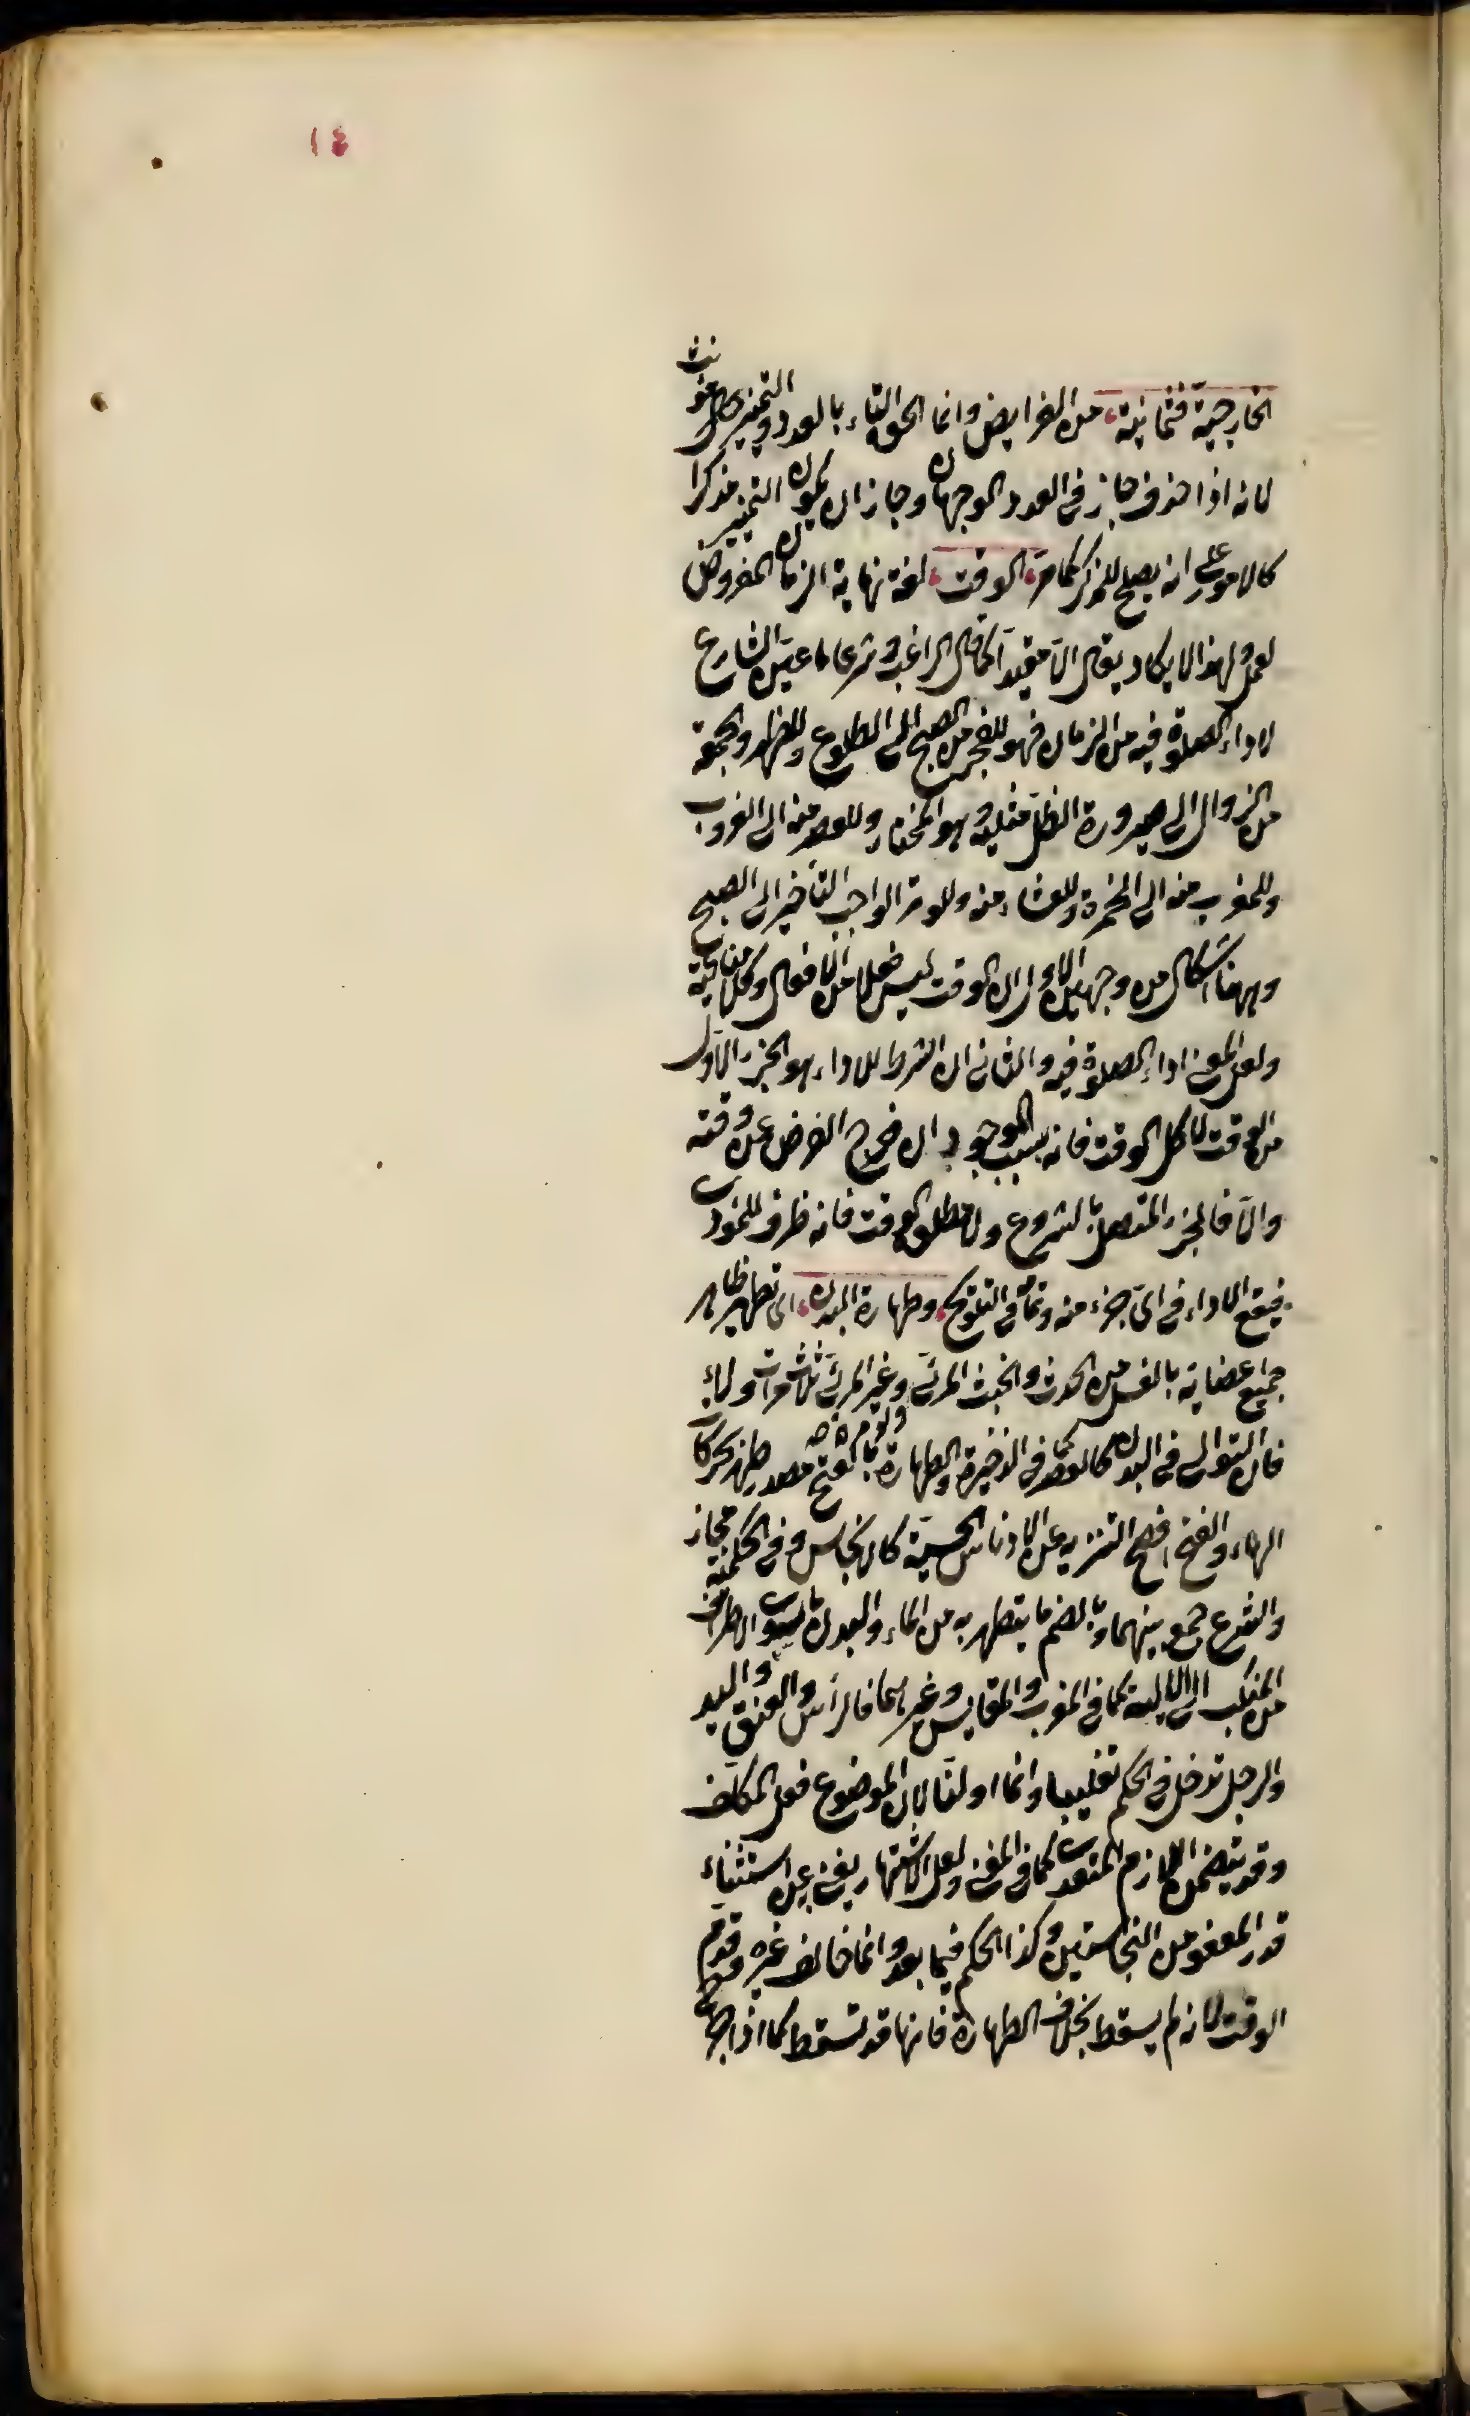 ١٤
الخارجية فثمانية من الفرايض وانما الحق التاء بالعدد والتمييز مؤنث
لانه اذا حذف جاز في العدد الوجهان وجاز ان يكون التمييز مذكرا
كالامور على انه يصلح للمذكر كما مر الوقت لغة نهاية الزمان المفروض
لعمل ولهذا لا يكاد يقال الا مقيدا كما قال الراغب وشرعا ما عين الشارع
لاداء الصلوة فيه من الزمان فهو للفجر من الصبح الى الطلوع وللظهر والجمعة
من الزوال الى صيرورة الظل مثليه وهو المختار وللعصر منه الى الغروب
وللمغرب منه الى الحمرة وللعشاء منه وللوتر الواجب التأخير الى الصبح
وههنا اشكال من وجهين الاول ان الوقت ليس فعلا من الافعال وكلامنا فيه
ولعل المعنى اداء الصلوة فيه والثاني ان الشرط للاداء هو الجزء الاول
من الوقت لا كل الوقت فانه سبب الوجوب ان خرج الفرض عن وقته
والا فالجزء المتصل بالشروع ولا مطلق الوقت فانه ظرف للمؤدى
فيقع الاداء في اي جزء منه وتمامه في التلويح وطهارة البدن اى تطهير ظاهر
جميع اعضايه بالغسل من الحدث والخبث المرئي وغير المرئي ثلاث مرات ولاء
فان التوالي في البدن كالعصر كما في الذخيرة والطهارة بالفتح مصدر طهر بحركات
الهاء والفتح افصح التنزيه عن الادناس الحسية كالانجاس وفي الحكمية مجاز
والشرع جمع بينهما وبالضم ما يتطهر به من الماء والبدن ما سوى الاطراف
من المنكب الى الالية كما في المغرب والمقايس وغيرهما فالرأس والعنق واليد
والرجل تدخل في الحكم تغليبا وانما اولنا لان الموضوع فعل المكلف
وقد يتضمن اللازم المتعدي كما في المغني ولعل الاشتهار يغني عن استثناء
قدر المعفو من النجاستين وكذا الحكم فيما بعد وانما خالف غيره وقدم
الوقت لانه لم يسقط بخلاف الطهارة فانها قد تسقط كما اذا